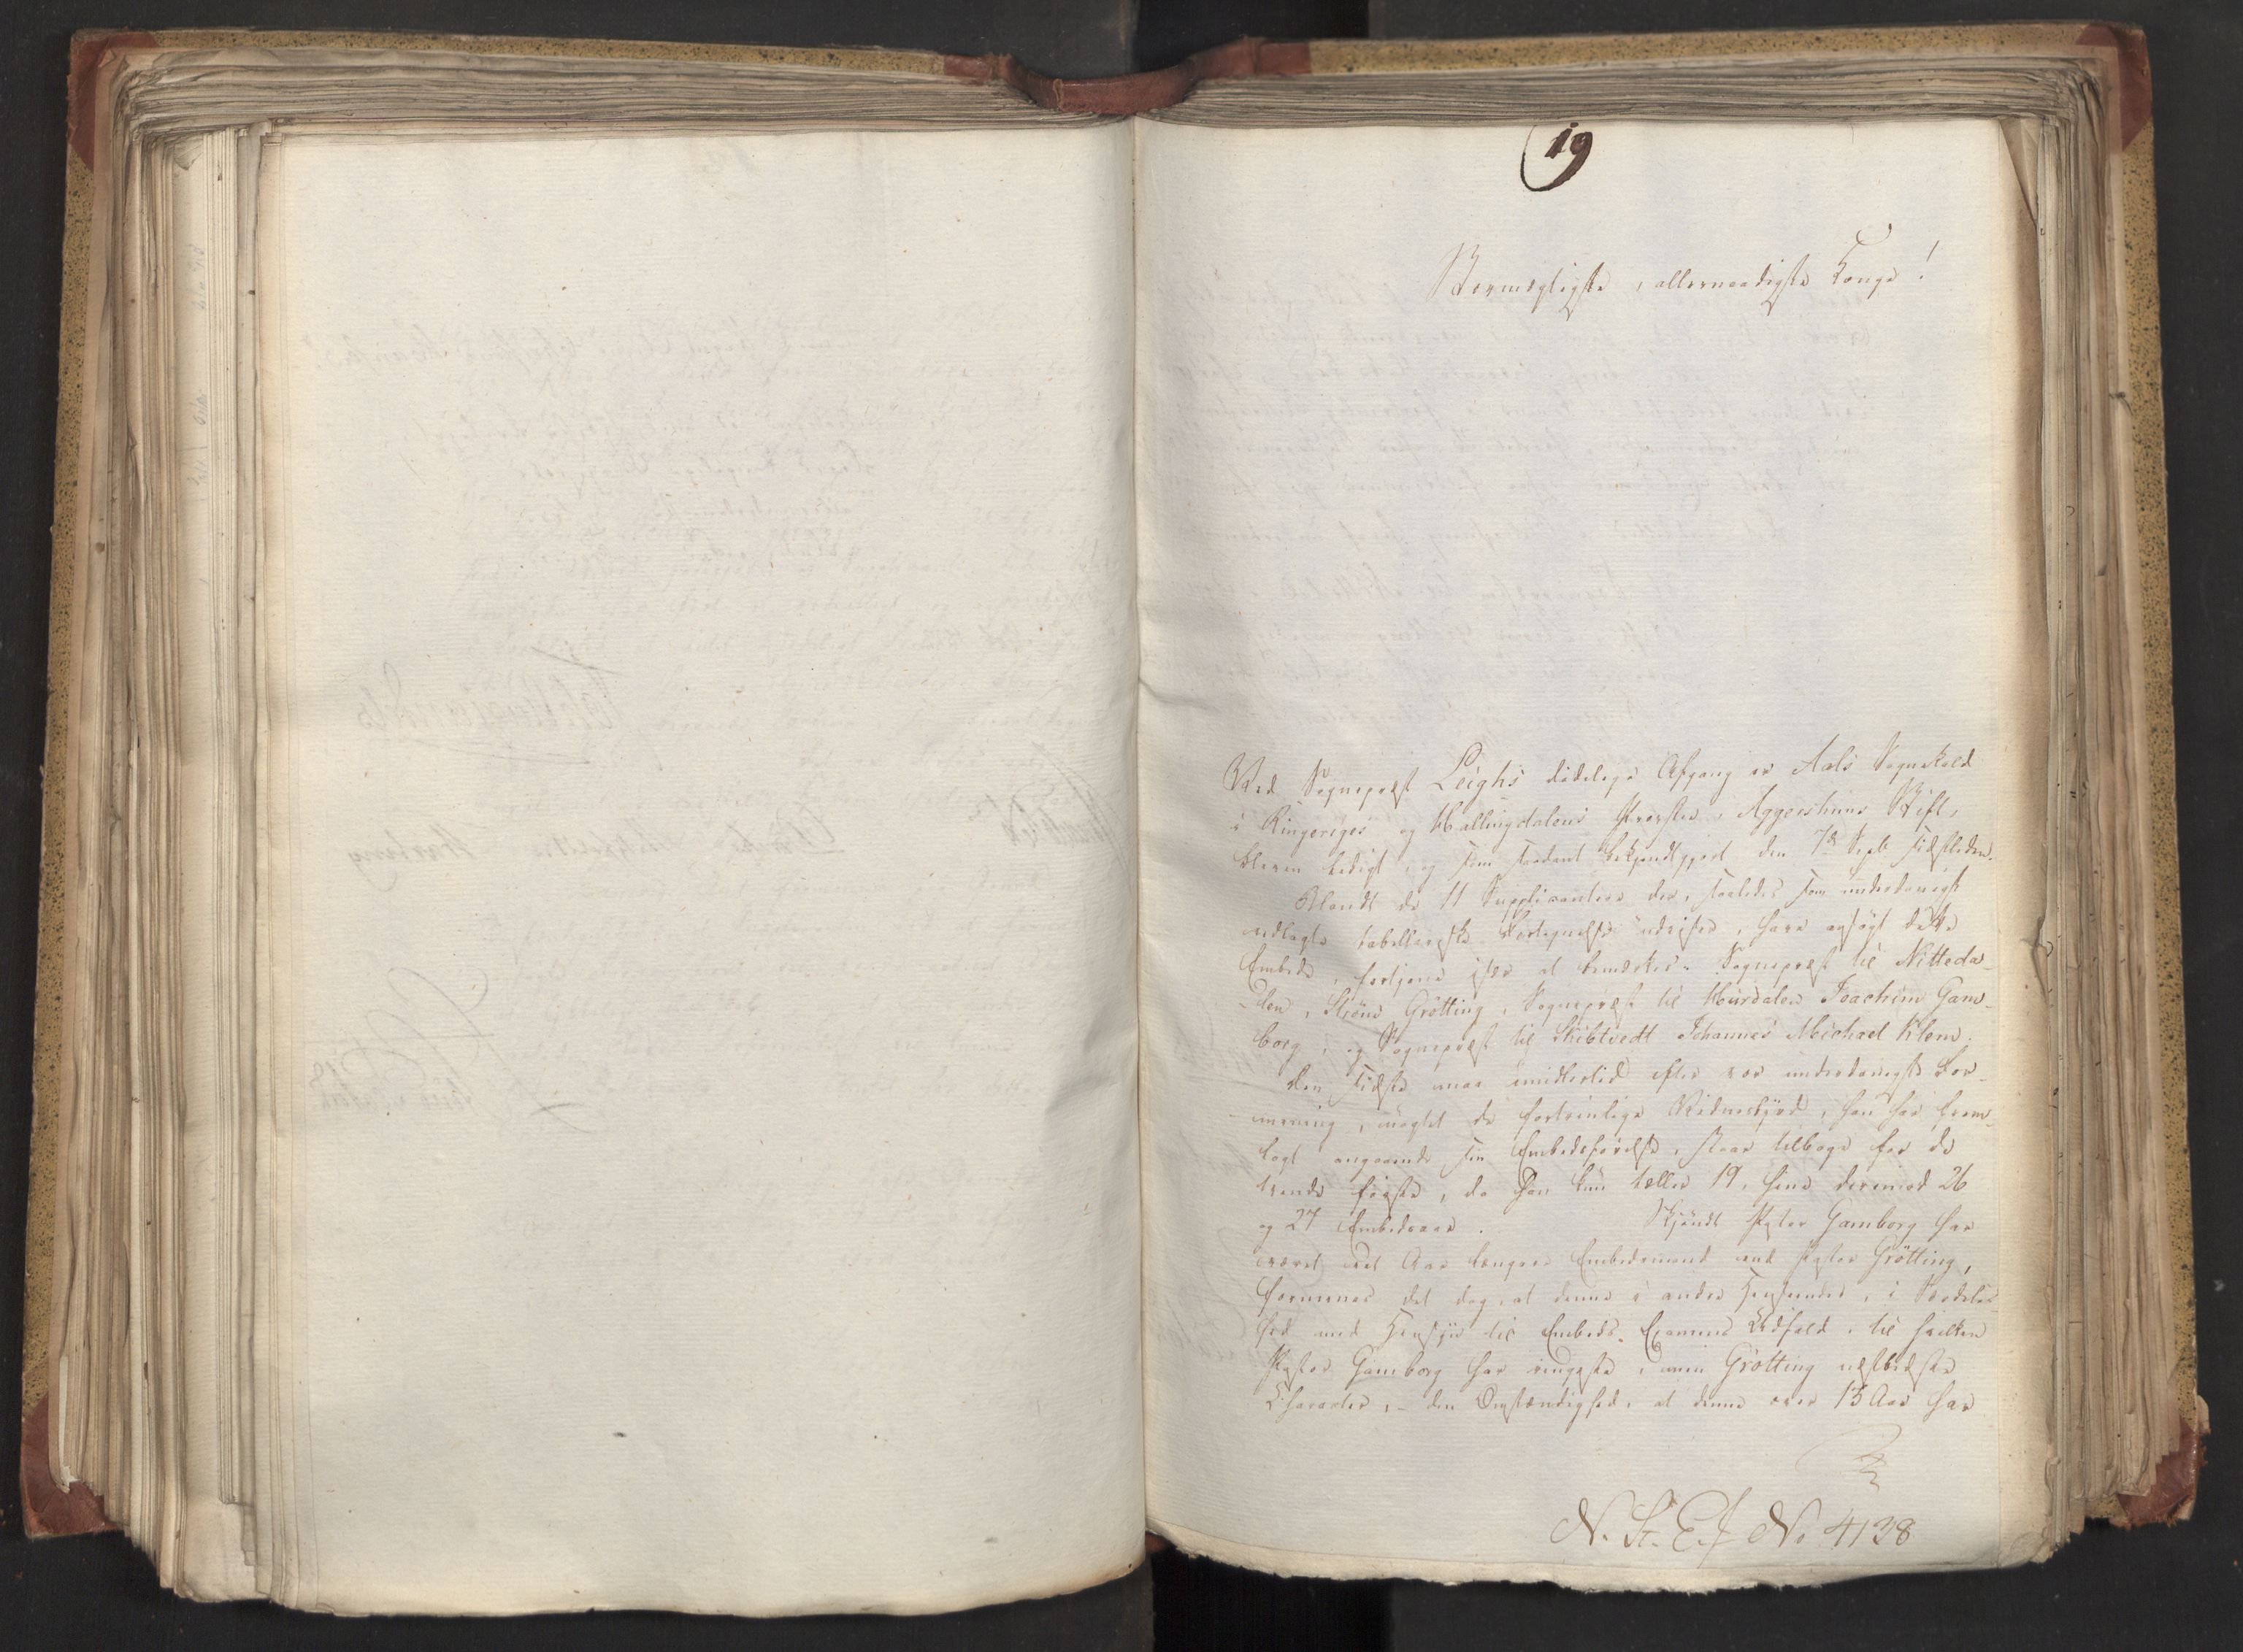 19
Stormægtigste, allernaadigste Konge!
Ved Sognepræst Leighs dödelige Afgang er Aals Sognekald
i Ringeriges og Hallingdalens Provstie i Aggershuus Stift,
bleven ledigt, og som saadant bekjendtgjort den 7de Sept sidstleden.
Blandt de 11 Supplicantere der, saaledes som underdanigst
vedlagte tabellariske Fortegnelse udviser, have ansögt dette
Embede, fortjene især at bemærkes: Sognepræst til Nitteda-
-len, Sköne Grötting, Sognepræst til Hurdalen Joachim Gam-
borg, og Sognepræst til Skibtvedt Johannes Michael Klem.
Den sidste maa imidlertid efter vor underdanigste For-
mening, uagtet de fortrinlige Vidnesbyrd, han har frem-
lagt angaaende sin Embedsförelse, staae tilbage for de
tvende förste, da han kun tæller 19, hine derimod 26
og 27 Embedsaar. Skjöndt Pastor Gamborg har
været et Aar længere Embedsmand end Pastor Grötting,
formenes det dog, at denne i andre Henseender, i Særdeles-
hed med Hensyn til Embeds-Examens Udfald, til hvilken
Pastor Gamborg har ringeste, men Grötting næstbedste
Character, - den Omstændighed, at denne over 15 Aar har
N. St. E. J No 4138